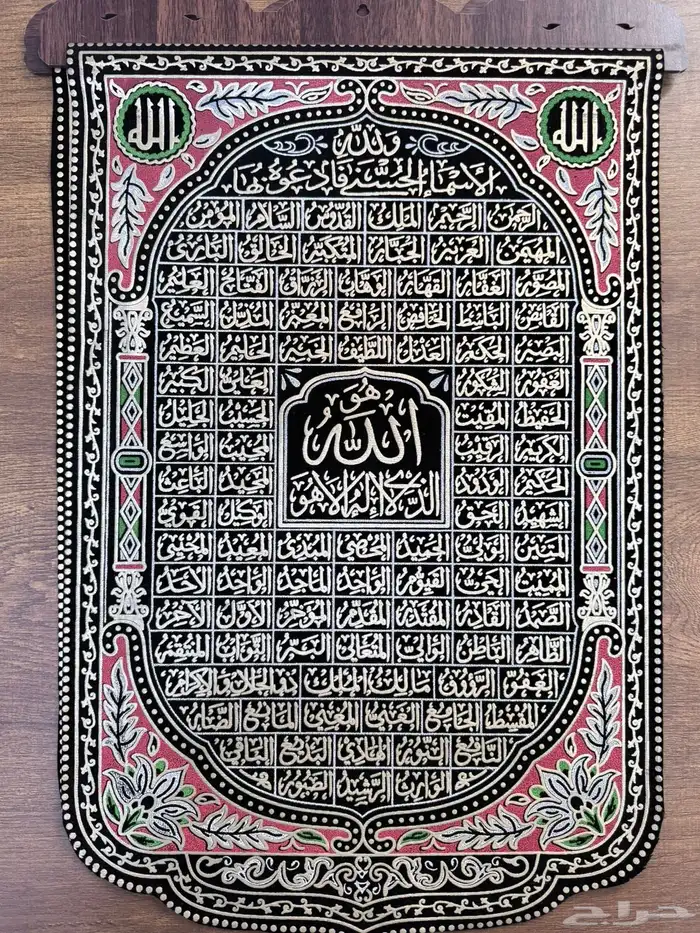 الله الله
ولله
الاسماء الحسنى فادعوه بها
الرحمن الرحيم الملك القدوس السلام المؤمن
المهيمن العزيز الجبار المتكبر الخالق البارئ
المصور الغفار القهار الوهاب الرزاق الفتاح العليم
القابض الباسط الخافض الرافع المعز المذل السميع
البصير الحكم العدل اللطيف الخبير الحليم العظيم
الغفور الشكور العلي الكبير
الحفيظ المقيت الحسيب الجليل
الكريم الرقيب المجيب الواسع
الحكيم الودود المجيد الباعث
الشهيد الحق الوكيل القوي
هو
الله
الذي لا إله إلا هو
المتين الولي الحميد المحصي المبدئ المعيد المحيي
المميت الحي القيوم الواجد الماجد الواحد الاحد
الصمد القادر المقتدر المقدم المؤخر الاول الآخر
الظاهر الباطن الوالي المتعالي البر التواب المنتقم
العفو الرؤوف مالك الملك ذو الجلال والاكرام
المقسط الجامع الغني المغني المانع الضار
النافع النور الهادي البديع الباقي
الوارث الرشيد الصبور
حراج